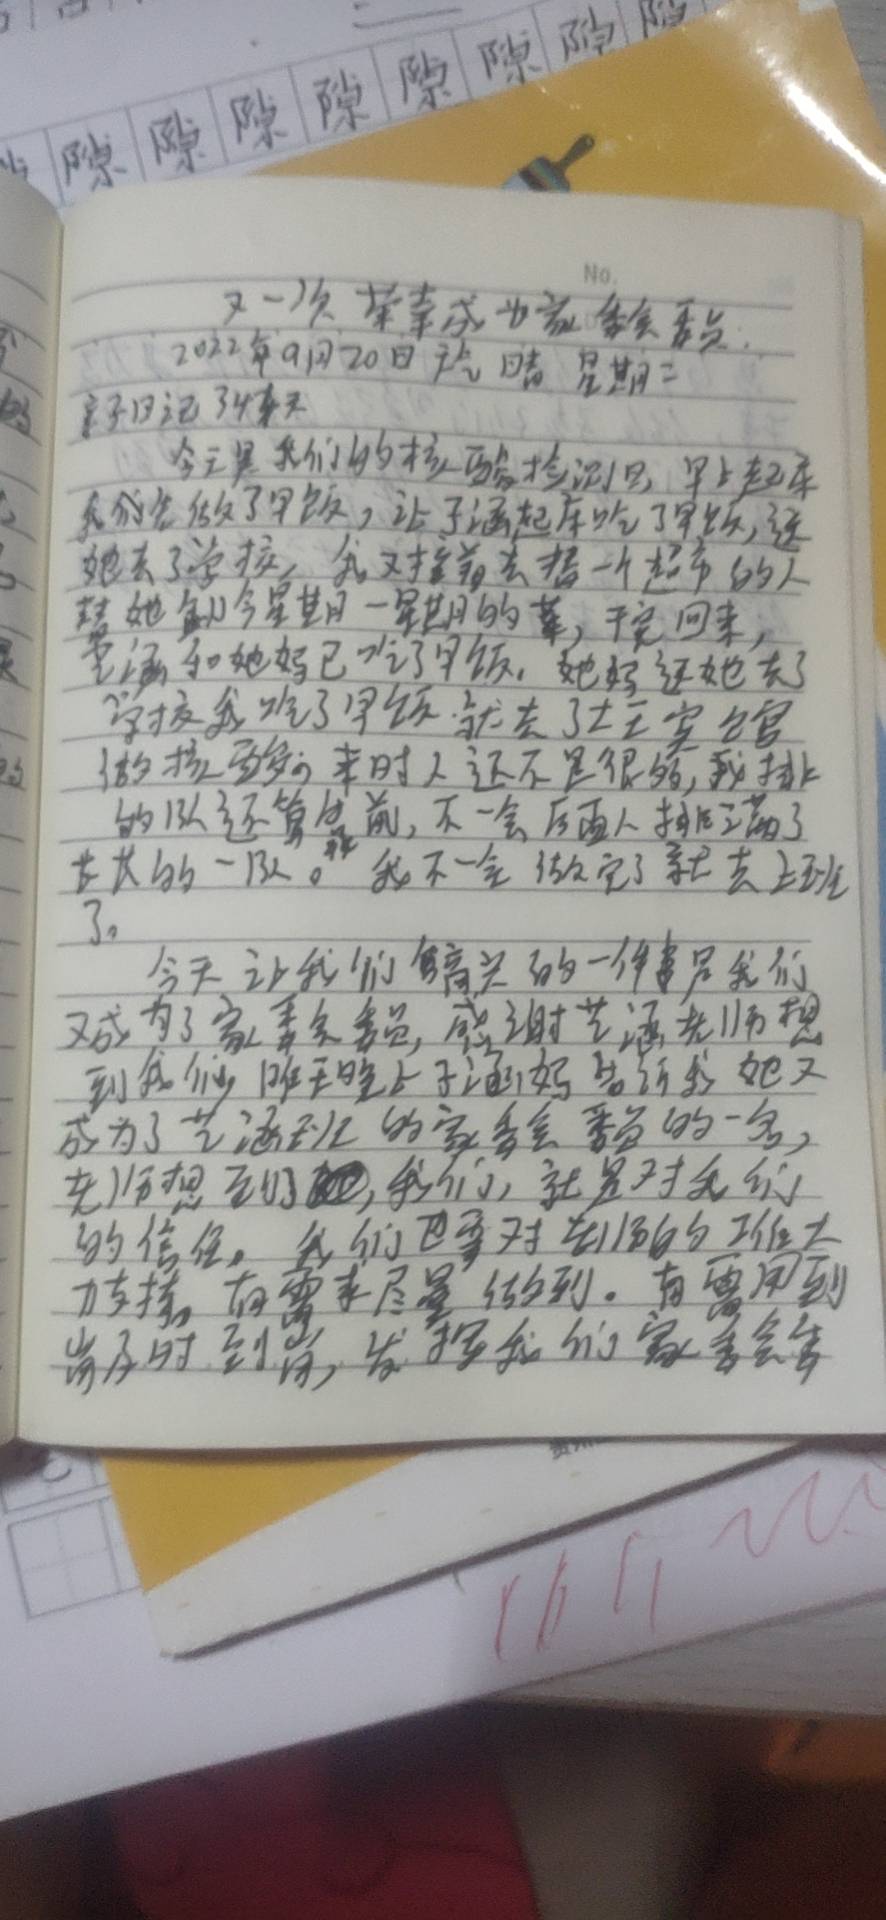 隙 隙 隙 隙 隙 隙 隙 隙
No.
又一次荣幸成为家委会委员.
2022年9月20日 晴 星期二
亲子日记
今天是我们的核酸检测日,早上起床
我先做了早饭,让子涵起床吃了早饭,送
她去了学校,我又接着去 一个超市的人
帮她 今星期一星期的菜,干完回来,
艺涵和她妈已吃了早饭.她妈送她去了
学校我吃了早饭就去了
做核酸。来时人还不是很多,我排
的队还算 前,不一会后面人排满了
长长的一队。我不一会做完了就去上班
了。
今天让我们高兴的一件事是我们
又成为了家委会委员,感谢艺涵老师想
到我们,昨天晚上子涵妈告诉我她又
成为了艺涵班的家委会委员的一名,
老师想到了,我们,就是对我们
的信任。我们也要对老师的工作大
力支持。有需求尽量做到.有需用到
岗及时到岗,发挥我们家委会